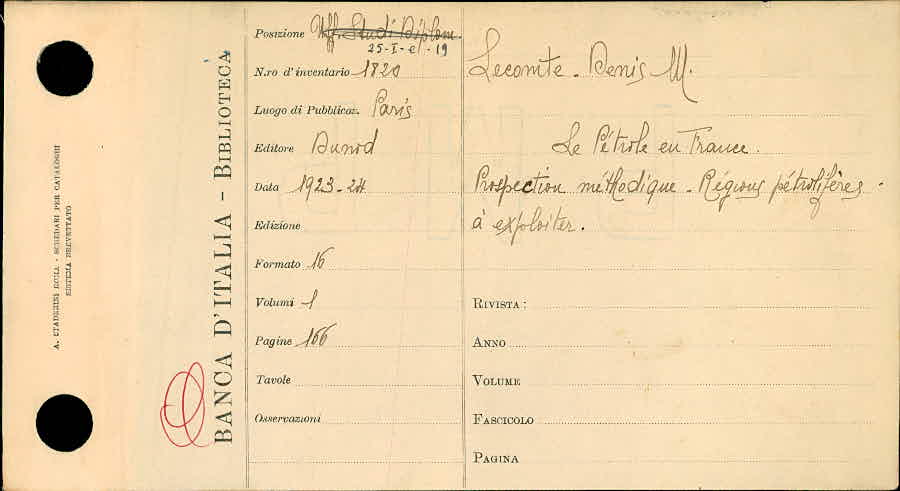 Posizione Uff. Studi Diplom.
25-I-e-19
N.ro d'inventario 1820
Luogo di Pubblicaz. Paris
Editore Dunod
Data 1923-24
Edizione
Formato 16
Volumi 1
Pagine 166
Tavole
Osservazioni
Lecomte-Denis M.
Le Pétrole en France.
Prospection méthodique - Régions pétrolifères
à exploiter.
RIVISTA:
ANNO
VOLUME
FASCICOLO
PAGINA
BANCA D'ITALIA - BIBLIOTECA
A. STADERINI ROMA - SCHEDARI PER CATALOGHI
SISTEMA BREVETTATO